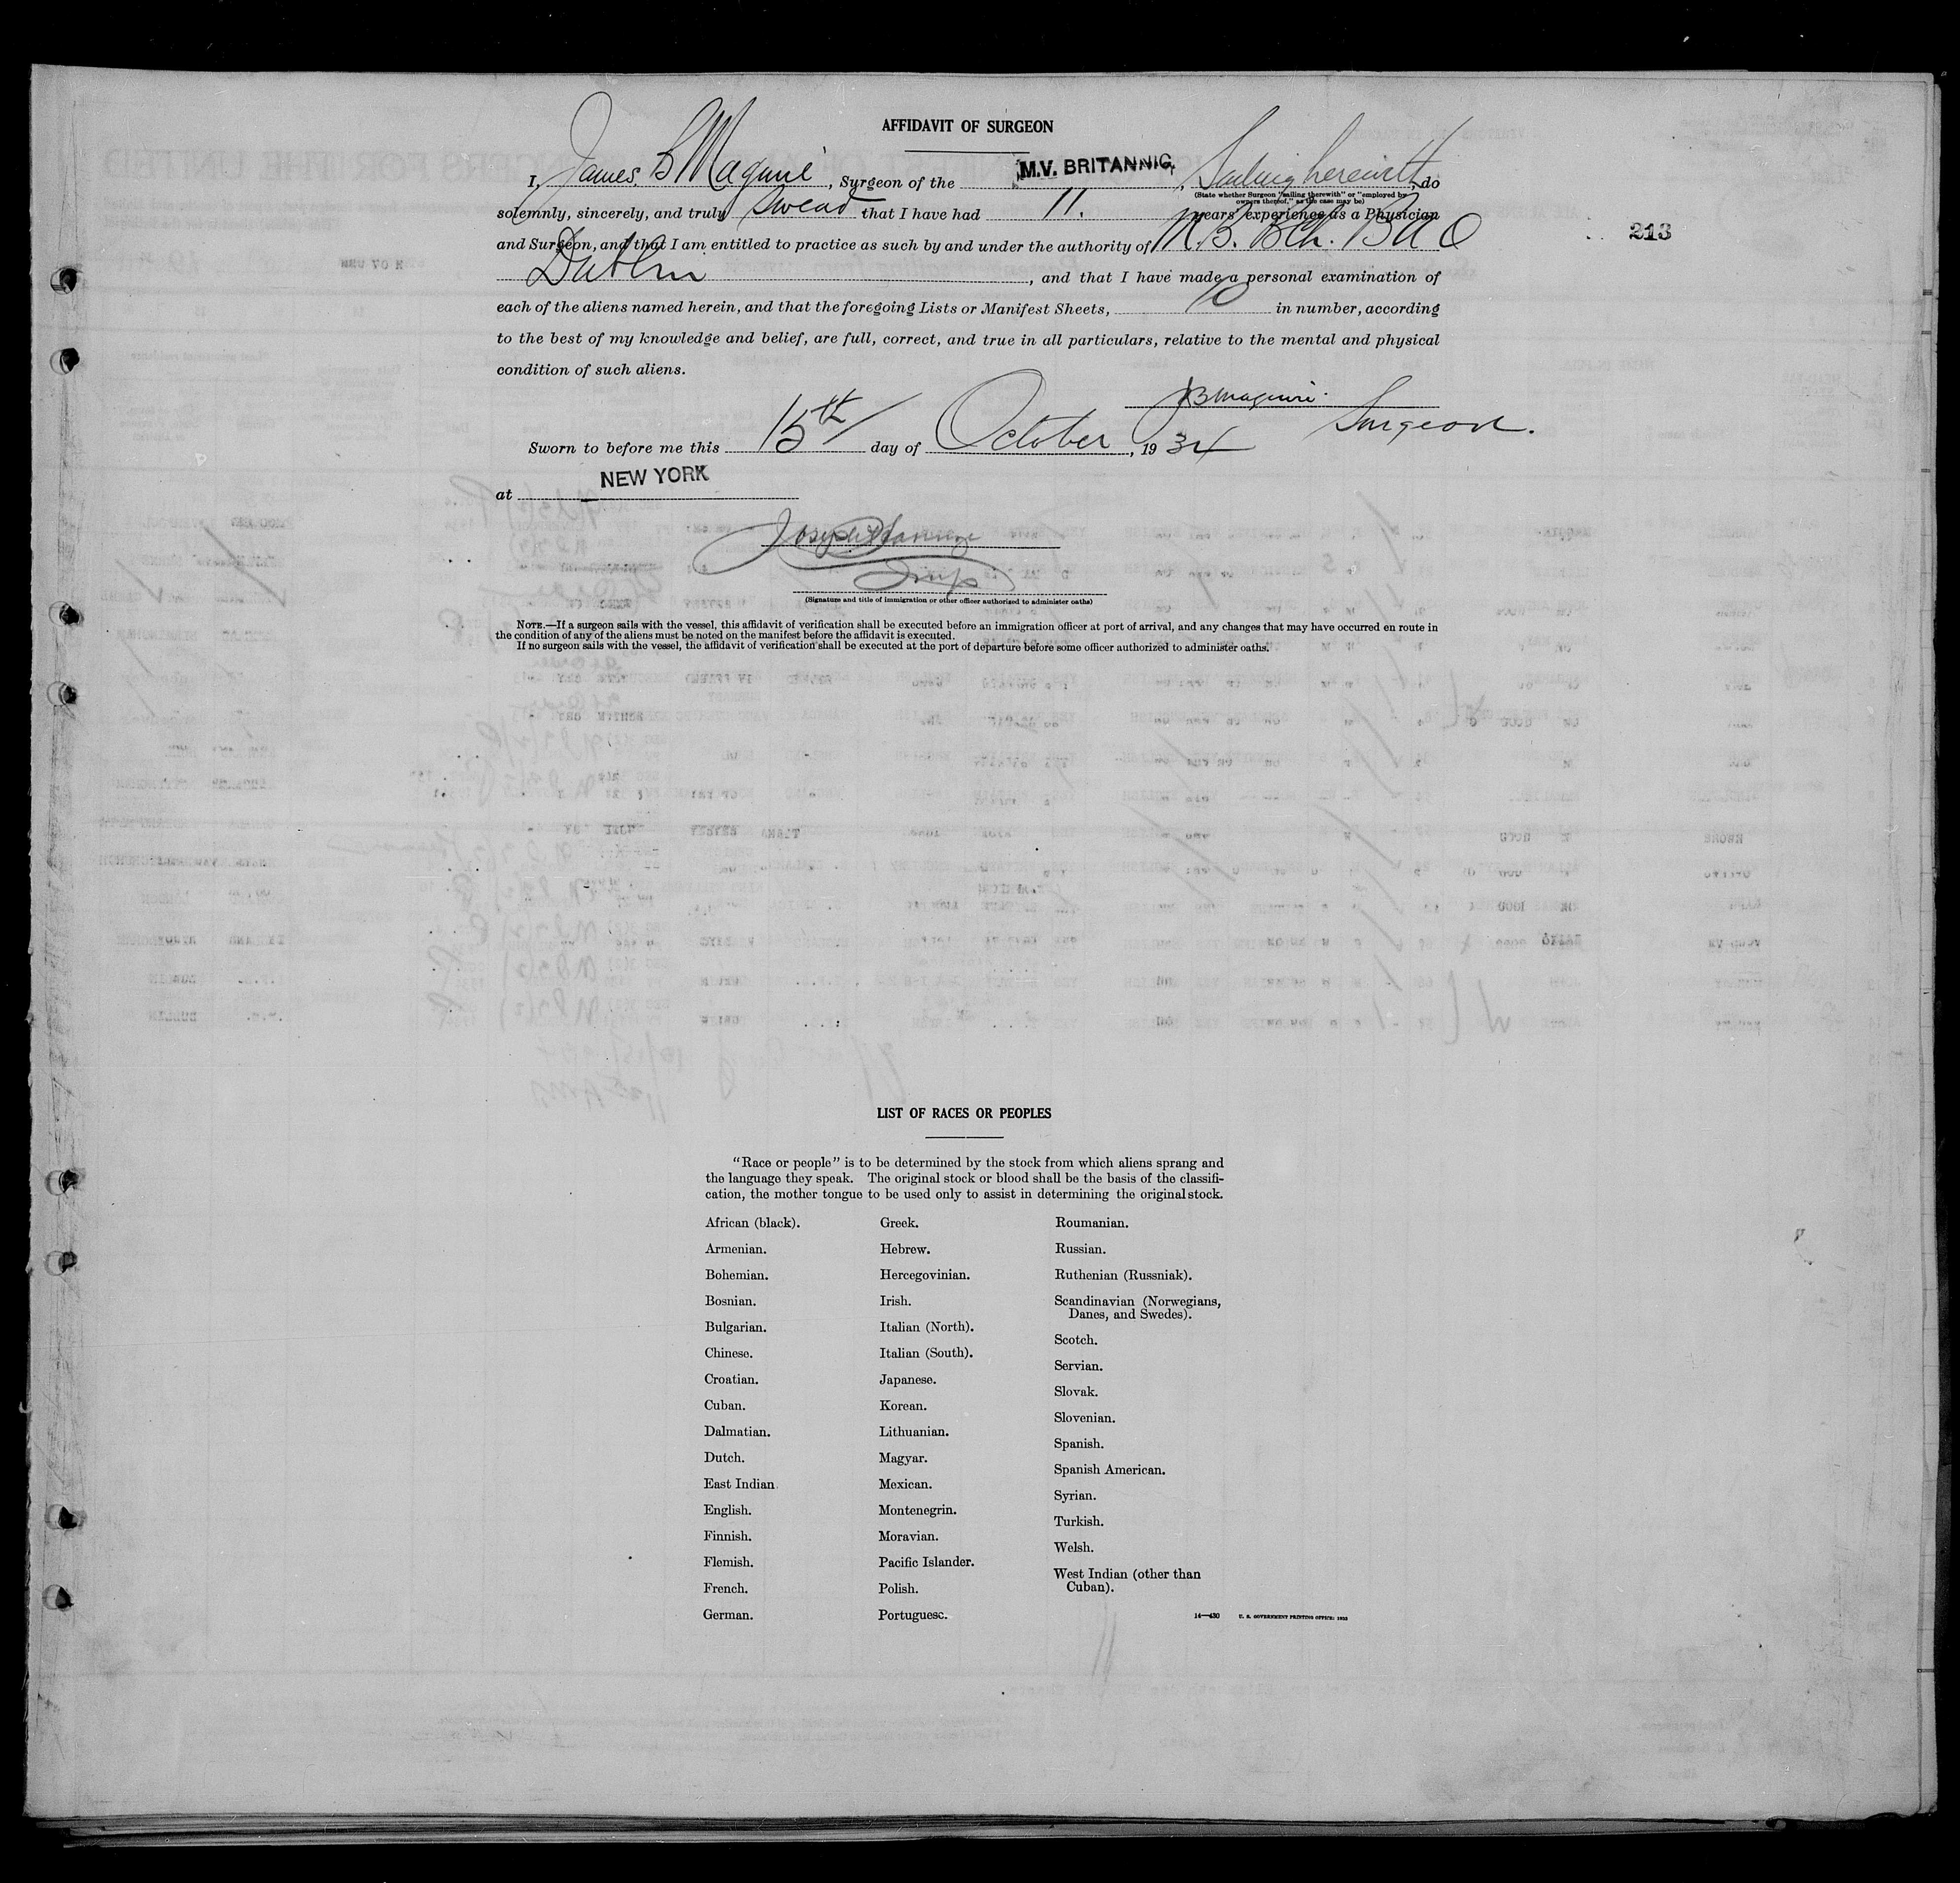 AFFIDAVIT OF SURGEON
I, James. B Maguire, Surgeon of the M.V. BRITANNIC, Sailing herewith, do
(State whether Surgeon "sailing therewith" or "employed by
owners thereof," as the case may be)
solemnly, sincerely, and truly swear that I have had 11. years' experience as a Physician
and Surgeon, and that I am entitled to practice as such by and under the authority of M.B. BCh. BAO
213
Dublin, and that I have made a personal examination of
each of the aliens named herein, and that the foregoing Lists or Manifest Sheets, 10 in number, according
to the best of my knowledge and belief, are full, correct, and true in all particulars, relative to the mental and physical
condition of such aliens.
JBMaguire.
Surgeon.
Sworn to before me this 15th day of October, 1934
at NEW YORK
Insp
(Signature and title of immigration or other officer authorized to administer oaths)
NOTE.—If a surgeon sails with the vessel, this affidavit of verification shall be executed before an immigration officer at port of arrival, and any changes that may have occurred en route in
the condition of any of the aliens must be noted on the manifest before the affidavit is executed.
If no surgeon sails with the vessel, the affidavit of verification shall be executed at the port of departure before some officer authorized to administer oaths.
LIST OF RACES OR PEOPLES
"Race or people" is to be determined by the stock from which aliens sprang and
the language they speak. The original stock or blood shall be the basis of the classifi-
cation, the mother tongue to be used only to assist in determining the original stock.
African (black).
Armenian.
Bohemian.
Bosnian.
Bulgarian.
Chinese.
Croatian.
Cuban.
Dalmatian.
Dutch.
East Indian.
English.
Finnish.
Flemish.
French.
German.
Greek.
Hebrew.
Hercegovinian.
Irish.
Italian (North).
Italian (South).
Japanese.
Korean.
Lithuanian.
Magyar.
Mexican.
Montenegrin.
Moravian.
Pacific Islander.
Polish.
Portuguese.
Roumanian.
Russian.
Ruthenian (Russniak).
Scandinavian (Norwegians,
Danes, and Swedes).
Scotch.
Servian.
Slovak.
Slovenian.
Spanish.
Spanish American.
Syrian.
Turkish.
Welsh.
West Indian (other than
Cuban).
14—430 U. S. GOVERNMENT PRINTING OFFICE: